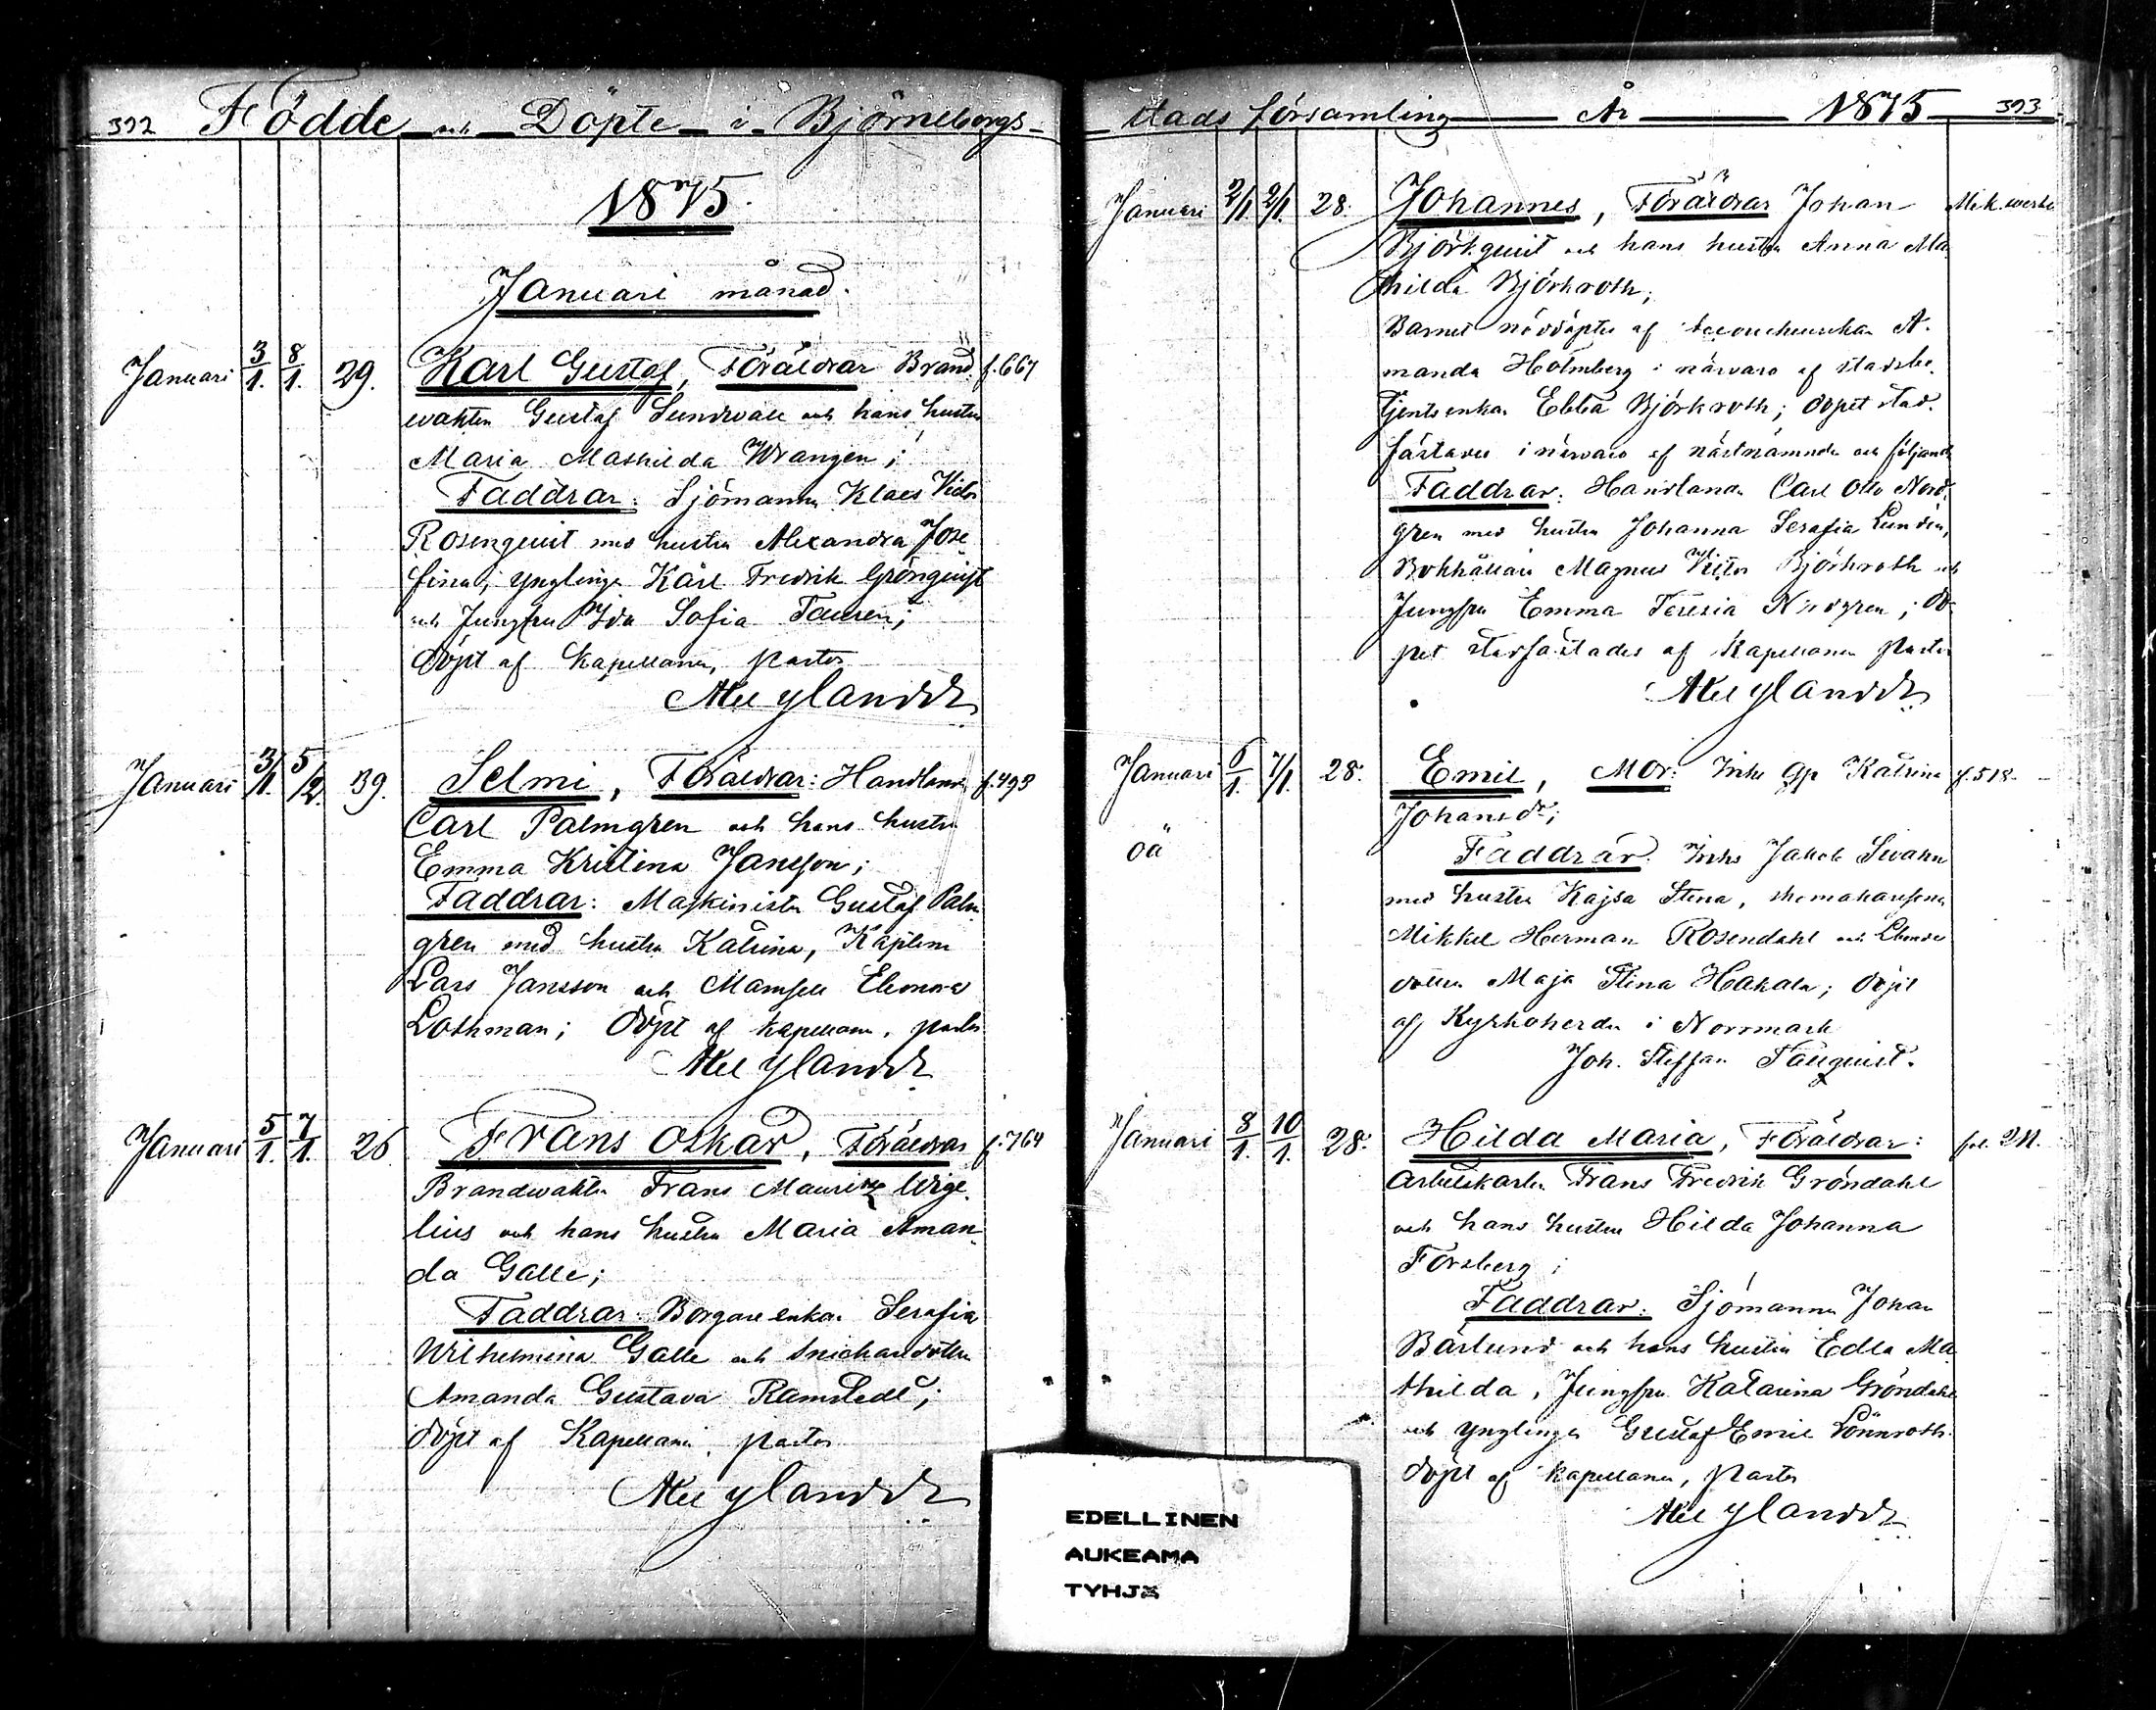 392 Födde och Döpte i Björneborgs
1875.
Januari månad.
Januari 3/1. 8/1. 29. Karl Gustaf, Föräldrar Brand f. 667
wakten Gustaf Sundwall och hans hustru
Maria Mathilda Wrangén;
Faddrar: Sjömannen Klaes Victor
Rosenquist med hustru Alexandra Jose
fina, ynglingen Karl Fredrik Grönquist
och Jungfru Ida Sofia Tauren;
döpt af Kapellanen, pastor
Axel Ylander
Januari 3/1. 5/2. 39. Selmi, Föräldrar: Handlanden f. 493
Carl Palmgren och hans hustru
Emma Kristina Jansson;
Faddrar: Maskinisten Gustaf Palm
gren med hustru Katrina, Kapten
Lars Jansson och Mamsell Eleonora
Lothman; döpt af kapellanen, pastor
Axel Ylander
Januari 5/1. 7/1. 26 Frans Oskar, Föräldrar f. 764
Brandwakten Frans Mauritz Wige
lius och hans hustru Maria Aman
da Galle;
Faddrar: Borgare enkan Serafia
Wilhelmina Galle och Snickaredottren
Amanda Gustava Ramstedt;
döpt af Kapellanen, pastor
Axel Ylander
stads församling År 1875 393
Januari 2/1. 2/1. 28. Johannes, Föräldrar Johan
Björkquist och hans hustru Anna Ma
thilda Björkroth;
Barnet nöddöptes af Accoucheurskan A
manda Holmberg i närvaro af stadsbe
tjentenkan Ebba Björkroth; dopet stad
fästades i närvaro af nästnämnde och följande
Faddrar: Handlanden Carl Otto Nord
gren med hustru Johanna Serafia Lundén,
Bokhållare Magnus Victor Björkroth och
Jungfru Emma Teresia Nordgren; do
pet stadfästades af Kapellanen pastor
Axel Ylander
Januari 6/1. 7/1. 28. Emil, Mor: Inhs Gp Katrina f. 518.
Johansdr;
oä
Faddrar: Inhs Jakob Swahn
med hustru Kajsa Stina,
Mikkel Herman Rosendahl och
dottren Maja Stina Hakala; döpt
af Kyrkoherden i Norrmark
Joh. Steffan Tallquist.
Januari 8/1. 10/1. 28. Hilda Maria, Föräldrar: fol. 211.
Arbetskarlen Frans Fredrik Gröndahl
och hans hustru Hilda Johanna
Forsberg;
Faddrar: Sjömannen Johan
Bärlund och hans hustru Edla Ma
thilda, Jungfru Katarina Gröndahl
och Ynglingen Gustaf Emil Lönnroth
döpt af kapellanen, pastor
Axel Ylander
EDELLINEN
AUKEAMA
TYHJÄ